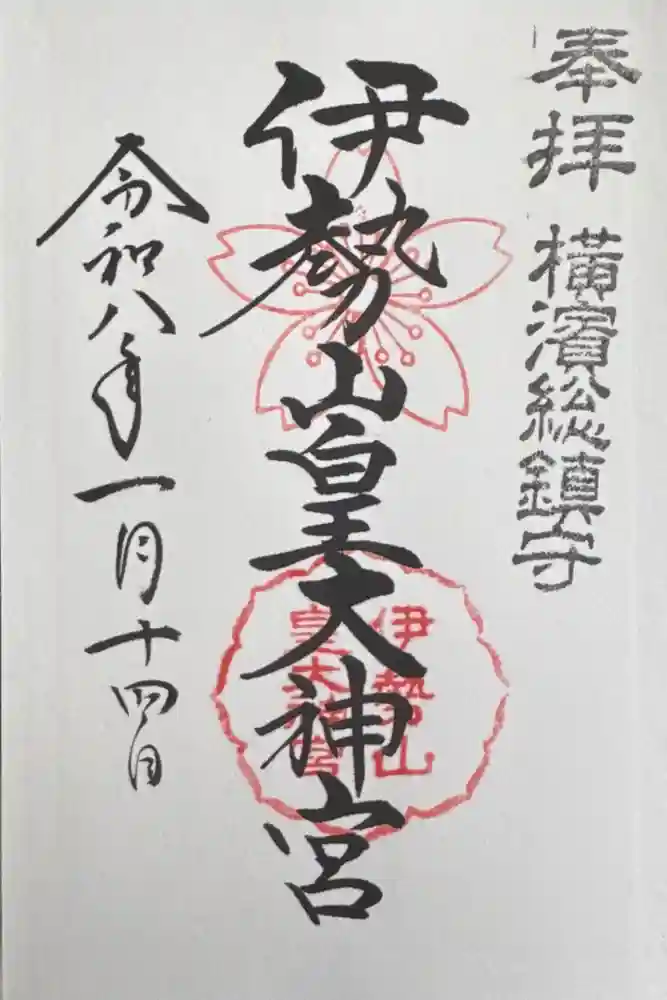 奉拝 横濱総鎮守
伊勢山皇大神宮
伊勢山
皇大神宮
令和八年一月十四日